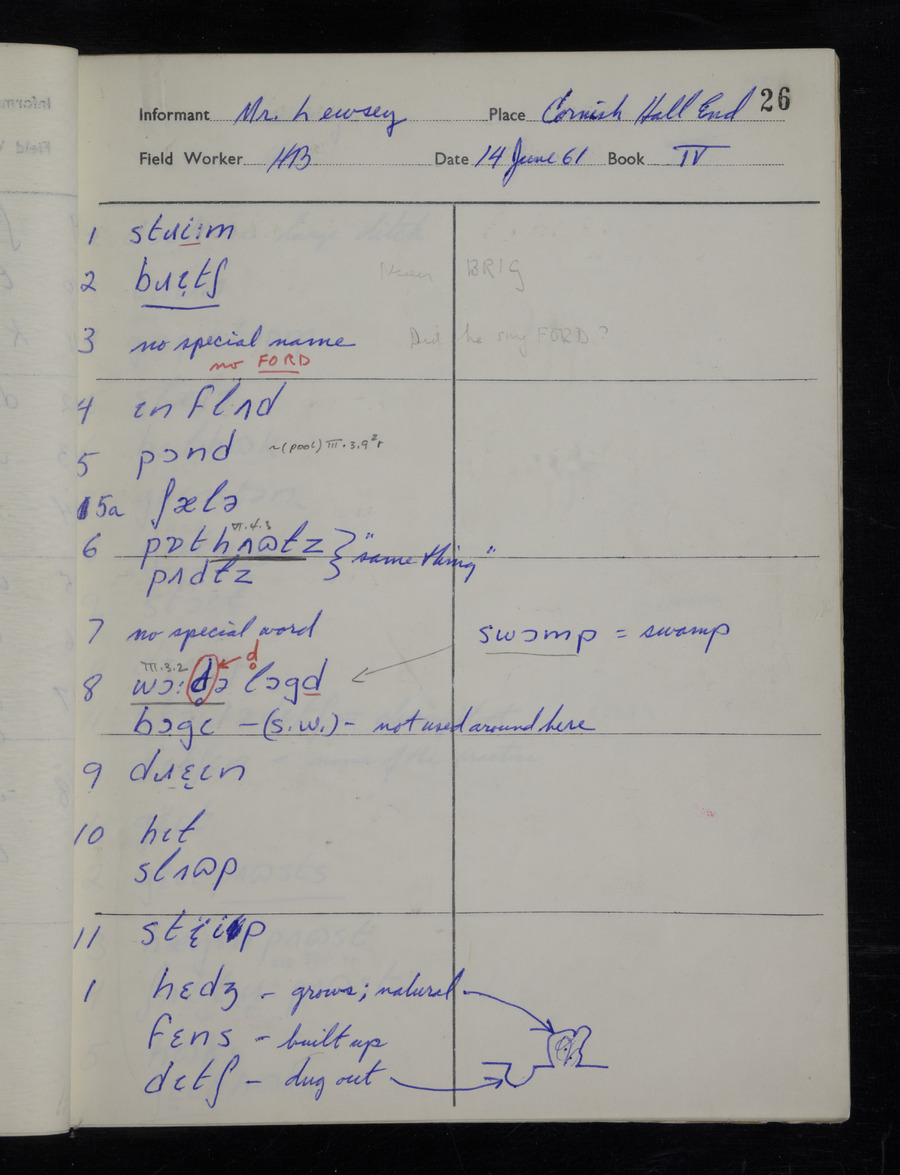 26
Informant Mr. Lewsey Place Cornish Hall End
Field Worker HB Date 14 June 61 Book IV
1 stɹi̞:m
2 bɹɪ̞tʃ BRIG
3 no special name Did he say FORD?
no FORD
4 ɩn flʌd
5 pɔnd ~(pool) III.3.9²r
15a ʃælə
VI.4.3
6 pɒthʌɷɫz } "same thing"
pʌdɫz
7 no special word swɔmp = swamp
III.3.2 d̥
8 wɔ:d̥ə lɔgd
bɔgɩ – (s.w.) – not used around here
9 dɹɛ̞ɩn
10 hɩɫ
slʌɷp
11 stɪ̈ip
1 hɛdʒ – grows; natural
fɛns – built up
dɩtʃ – dug out